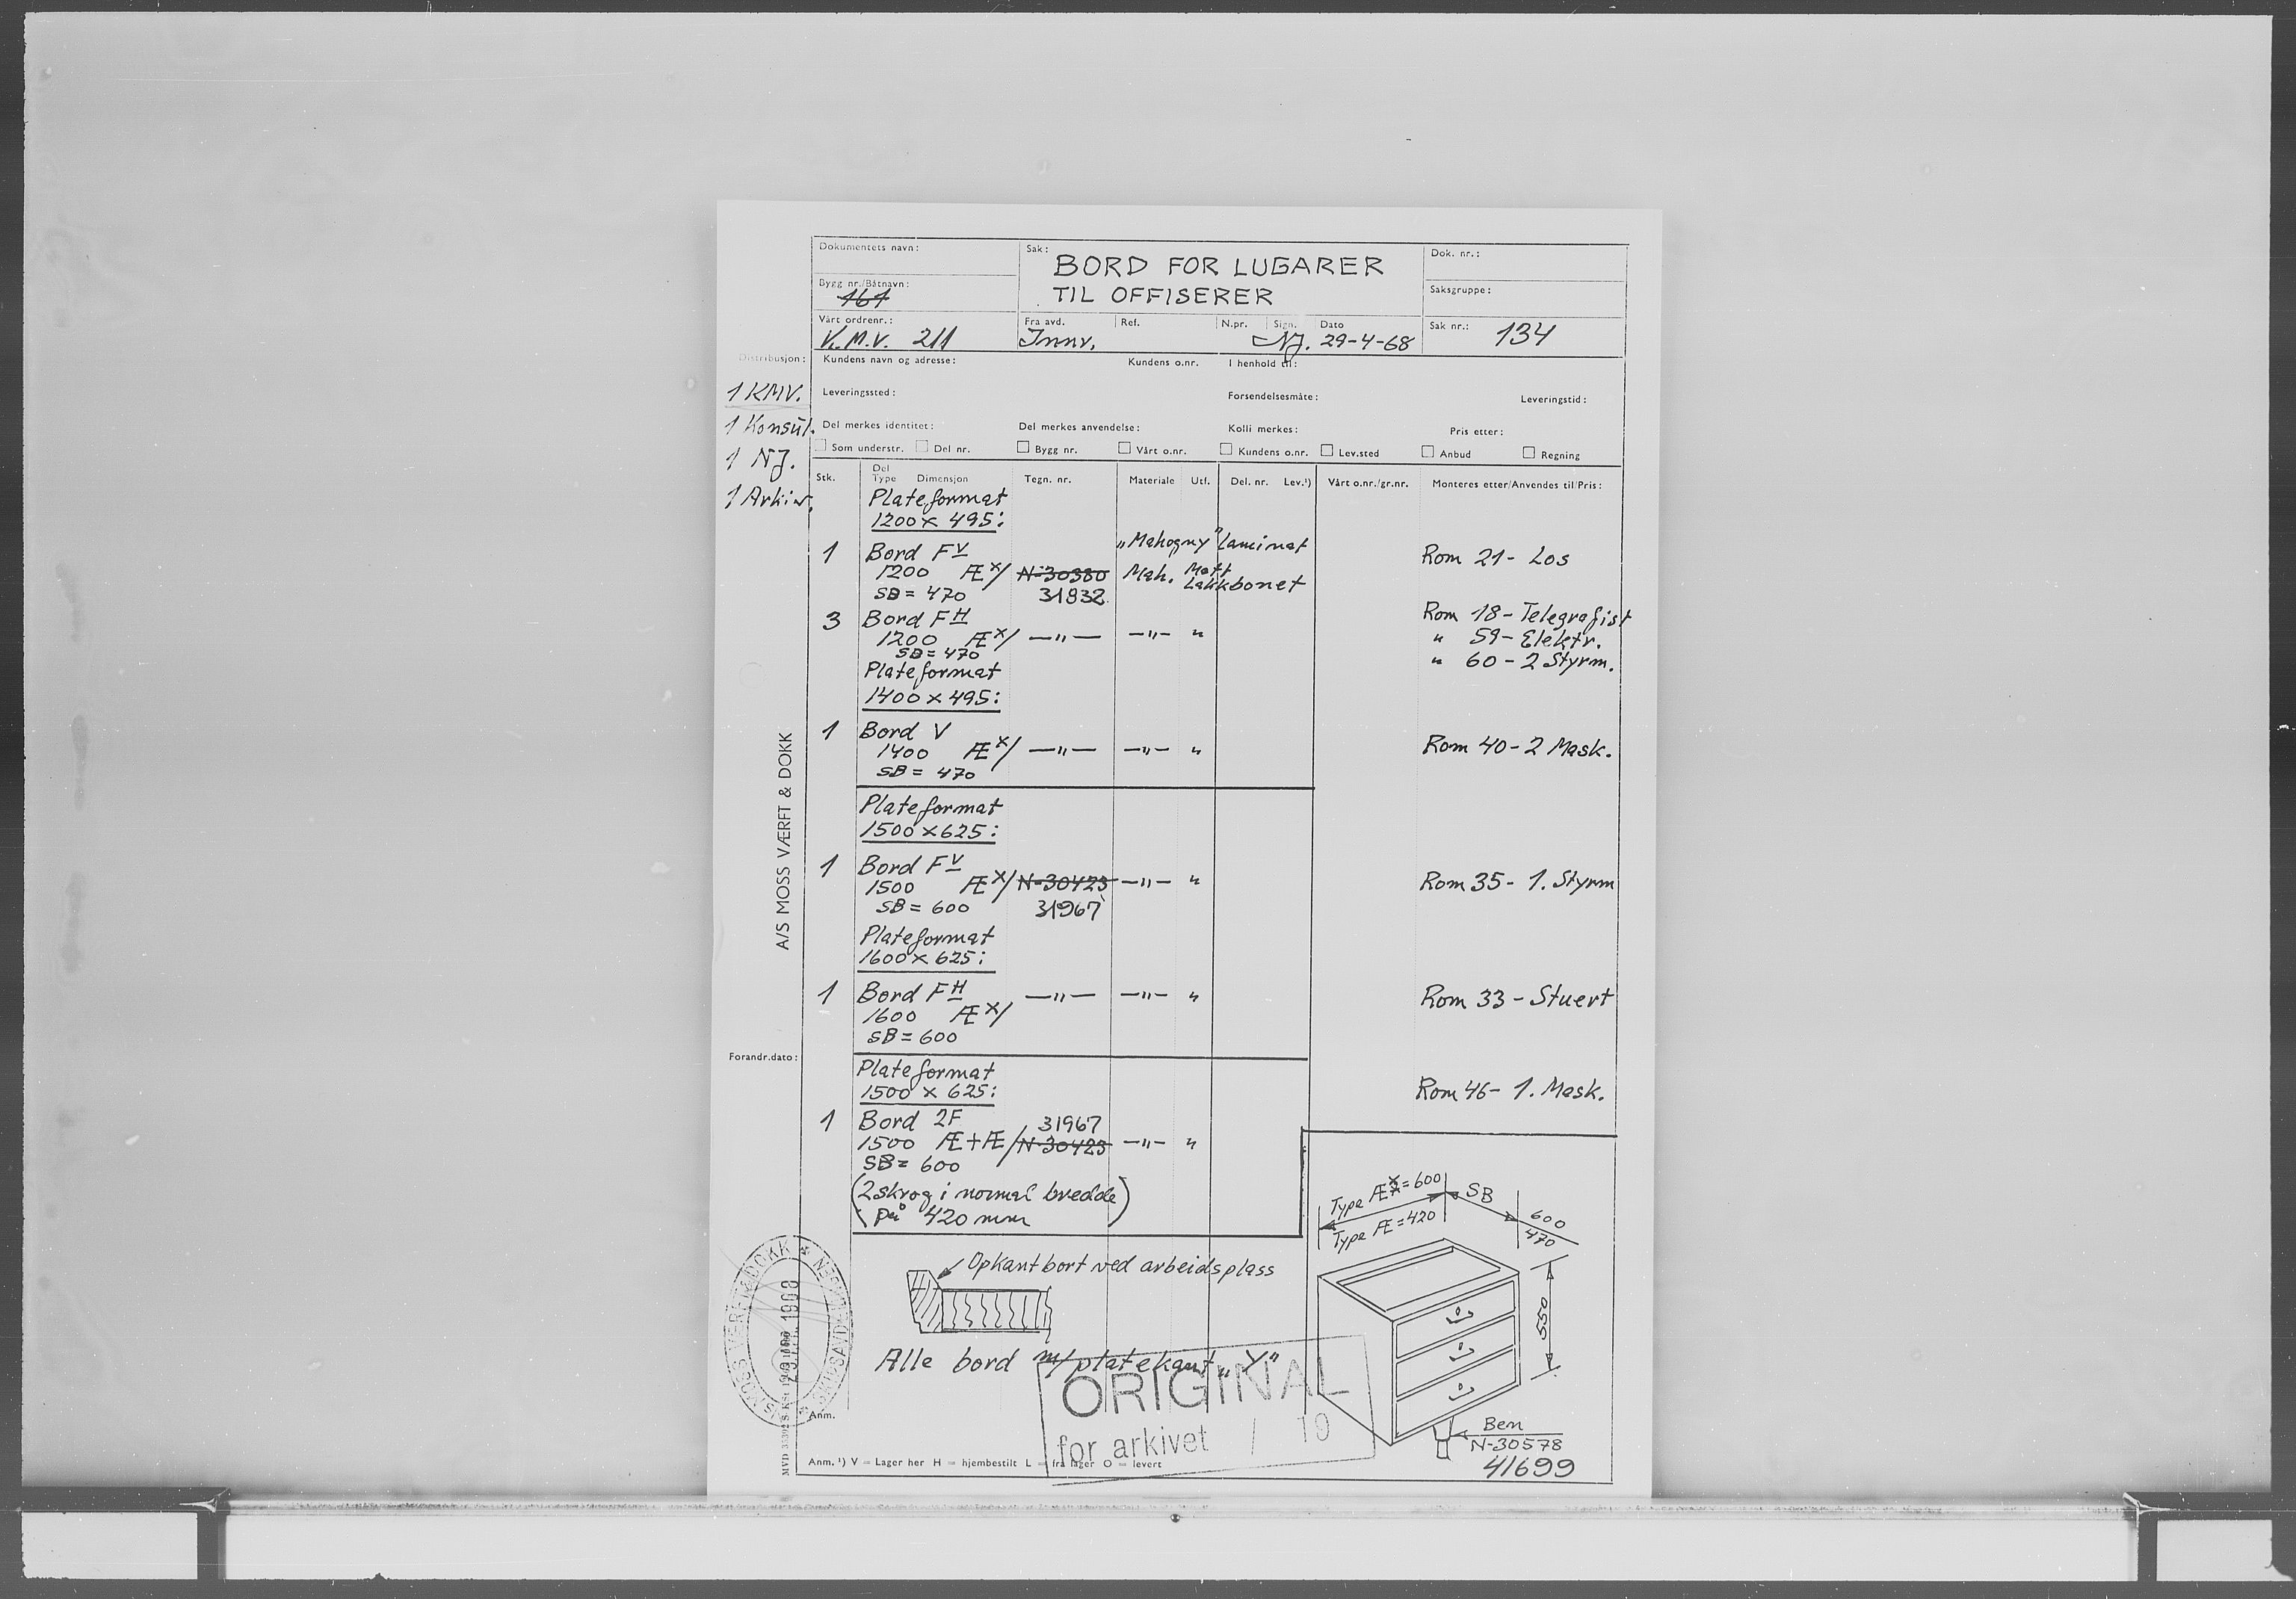 Dokumentets navn:
Sak:
BORD FOR LUGARER
TIL OFFISERER
Dok. nr.:
Bygg nr./Båtnavn:
161
Saksgruppe:
Vårt ordrenr.:
K.M.V. 211
Fra avd.
Innr.
Ref.
N.pr.
Sign.
NJ.
Dato
29-4-68
Sak nr.: 134
Distribusjon:
1 KMV.
1 Konsul.
1 NJ.
1 Arkiv.
Kundens navn og adresse:
Kundens o.nr.
I henhold til:
Leveringssted:
Forsendelsesmåte:
Leveringstid:
Del merkes identitet:
Del merkes anvendelse:
Kolli merkes:
Pris etter:
Som understr. Del nr. Bygg nr. Vårt o.nr. Kundens o.nr. Lev.sted Anbud Regning
Stk. Del Type Dimensjon Tegn. nr. Materiale Utf. Del. nr. Lev.¹) Vårt o.nr./gr.nr. Monteres etter/Anvendes til/Pris:
Plateformat
1200 x 495:
„Mahogny" laminat
1 Bord FV Rom 21- Los
1200 Æx/ N-30380 Mah. Matt Lakkbonet
SB = 470 31932
3 Bord FH Rom 18-Telegrafist
1200 Æx/ —"— —"— " " 59-Elektr.
SB = 470 " 60-2 Styrm.
Plateformat
1400 x 495:
1 Bord V
1400 Æx/ —"— —"— " Rom 40-2 Mask.
SB = 470
Plateformat
1500 x 625:
1 Bord FV
1500 Æx/ N-30423 —"— " Rom 35- 1. Styrm
SB = 600 31967
Plateformat
1600 x 625:
1 Bord FH —"— —"— " Rom 33-Stuert
1600 Æx/
SB = 600
Forandr.dato:
Plateformat
1500 x 625: Rom 46- 1. Mask.
1 Bord 2F 31967
1500 Æ+Æ/ N-30423 —"— "
SB = 600
(2 skrog i normal bredde
på 420 mm)
Opkant bort ved arbeidsplass
Alle bord m/platekant „Y"
Type Æx=600
Type Æ=420
SB
600
470
550
Ben
N-30578
41699
A/S MOSS VÆRFT & DOKK
ORIGINAL
for arkivet / 19
Anm.
Anm. ¹) V = Lager her H = hjembestilt L = fra lager O = levert